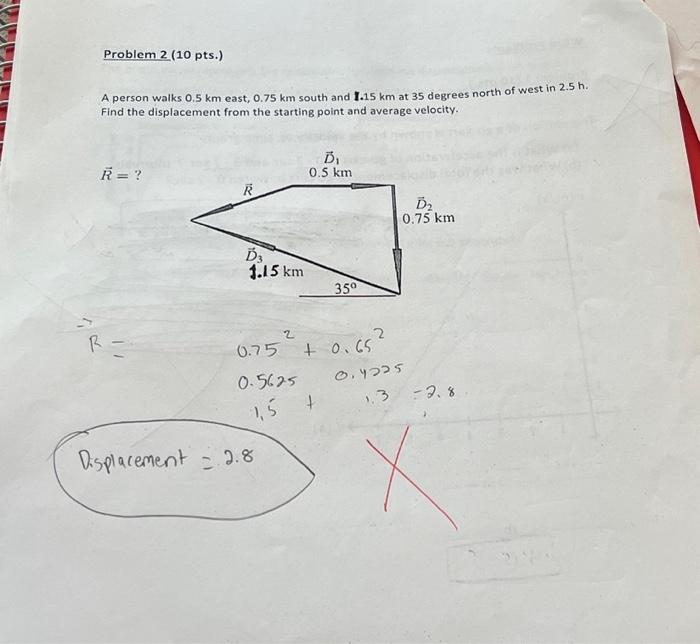 Problem 2 (10 pts.)
A person walks 0.5 km east, 0.75 km south and 1.15 km at 35 degrees north of west in 2.5 h.
Find the displacement from the starting point and average velocity.
R⃗ = ?
D⃗₁
0.5 km
R⃗
D⃗₂
0.75 km
D⃗₃
1.15 km
35º
R⃗ =
0.75² + 0.65²
0.5625 0.4225
1,5 + 1.3 = 2.8
Displacement = 2.8